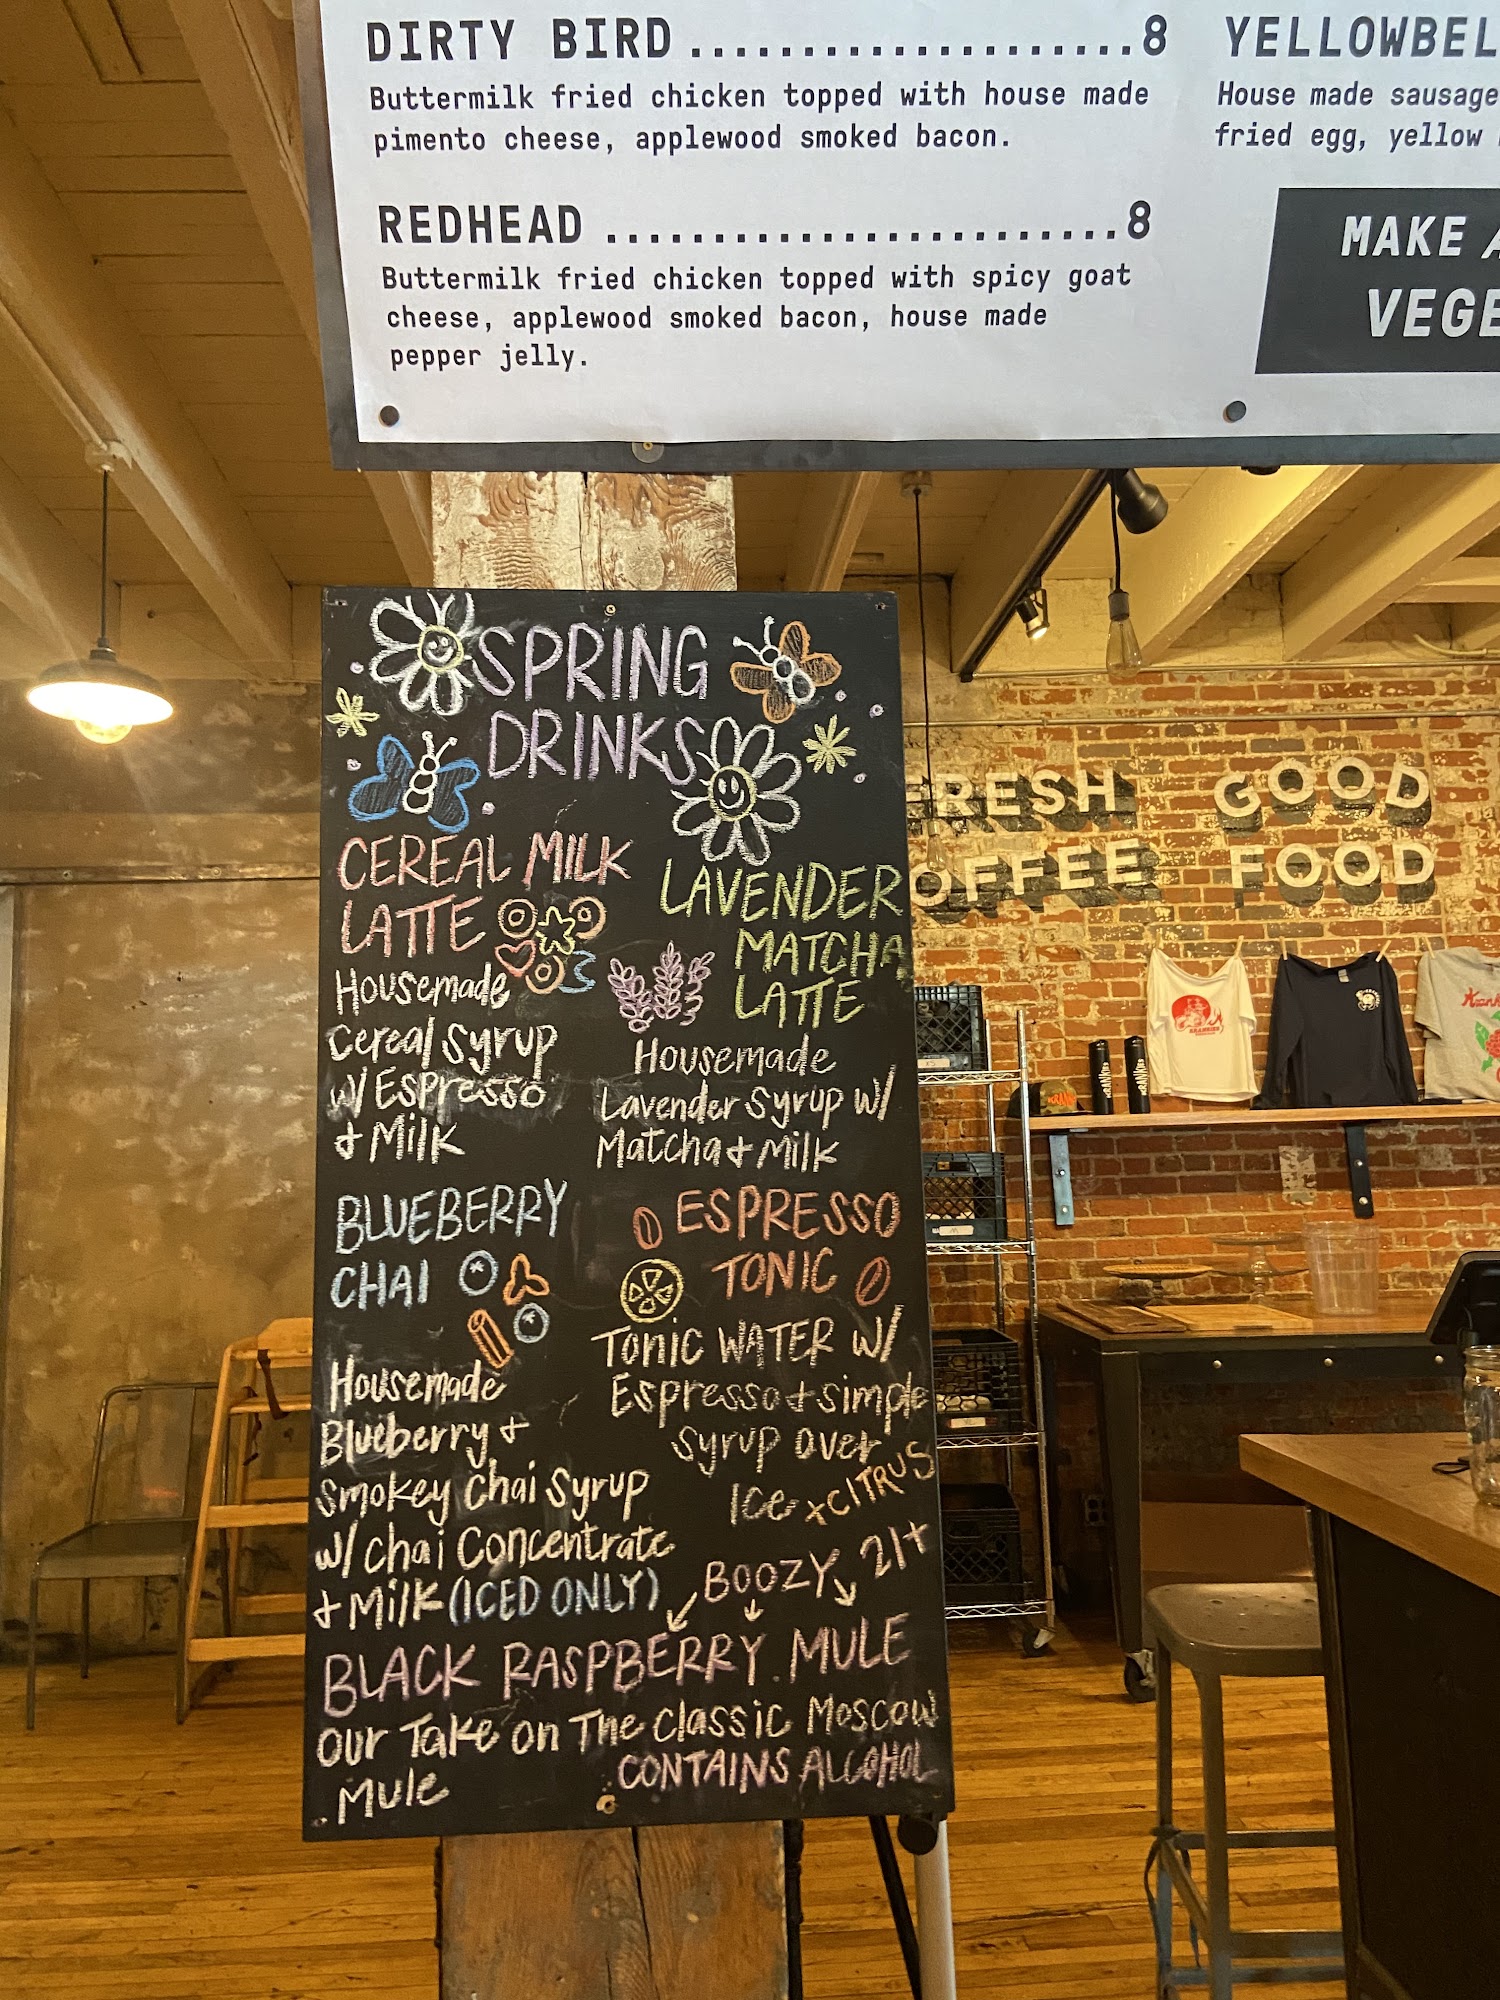 DIRTY BIRD ......................8
Buttermilk fried chicken topped with house made
pimento cheese, applewood smoked bacon.
REDHEAD ..........................8
Buttermilk fried chicken topped with spicy goat
cheese, applewood smoked bacon, house made
pepper jelly.
House made sausage
fried egg, yellow
MAKE
SPRING
DRINKS
CEREAL MILK
LATTE
Housemade
Cereal Syrup
w/ Espresso
+ Milk
LAVENDER
MATCHA
LATTE
Housemade
Lavender Syrup w/
Matcha + Milk
BLUEBERRY
CHAI
Housemade
Blueberry +
Smokey Chai Syrup
w/ chai Concentrate
+ Milk (ICED ONLY)
ESPRESSO
TONIC
Tonic WATER w/
Espresso + simple
Syrup over
Ice x CITRUS
BOOZY 21+
BLACK RASPBERRY MULE
OUR Take on The Classic Moscow
Mule
CONTAINS ALCOHOL
FRESH
COFFEE
GOOD
FOOD